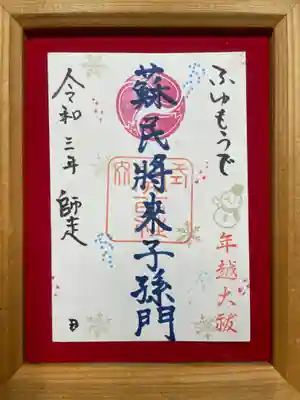 ふゆもうで
年越大祓
蘇民將来子孫門
令和三年 師走
日